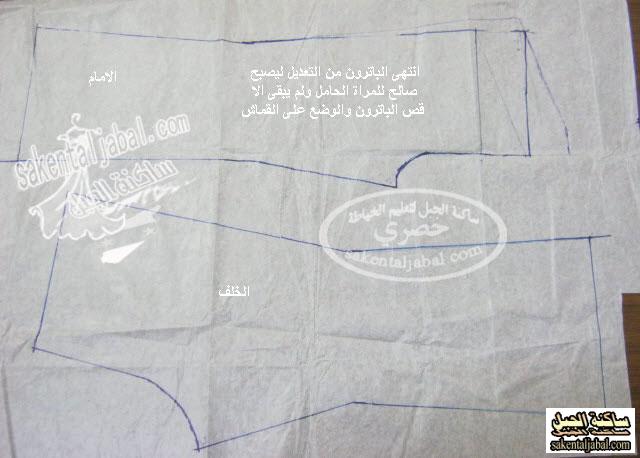 انتهى الباترون من التعديل ليصبح
صالح للمراة الحامل ولم يبقى الا
قص الباترون والوضع على القماش
الامام
sakentaljabal.com
ساكنة الجبل
ساكنة الجبل لتعليم الخياطة
حصري
sakentaljabal.com
الخلف
ساكنة الجبل
sakentaljabal.com